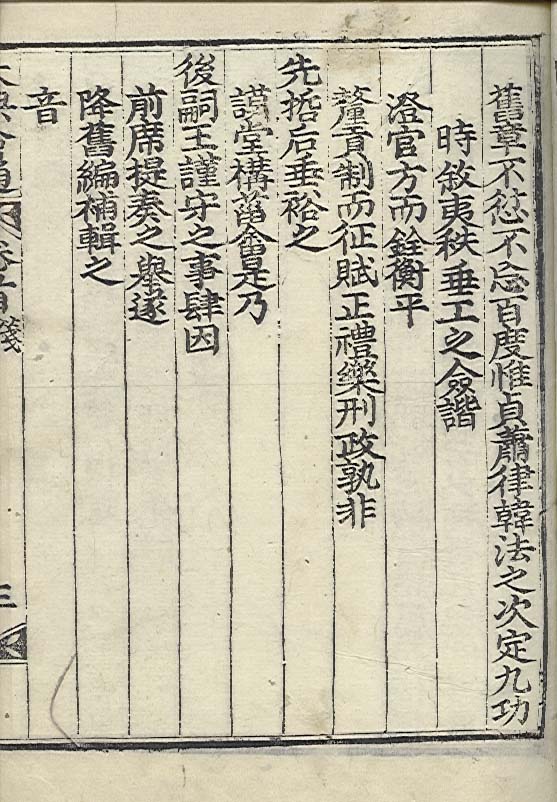 舊章不愆不忘百度惟貞蕭律韓法之次定九功
時敘夷秩垂工之僉諧
澄官方而銓衡平
釐貢制而征賦正禮樂刑政孰非
先哲后垂裕之
謨堂構菑畬是乃
後嗣王謹守之事肆因
前席提奏之擧遂
降舊編補輯之
音
大典會通 卷首 箋
三